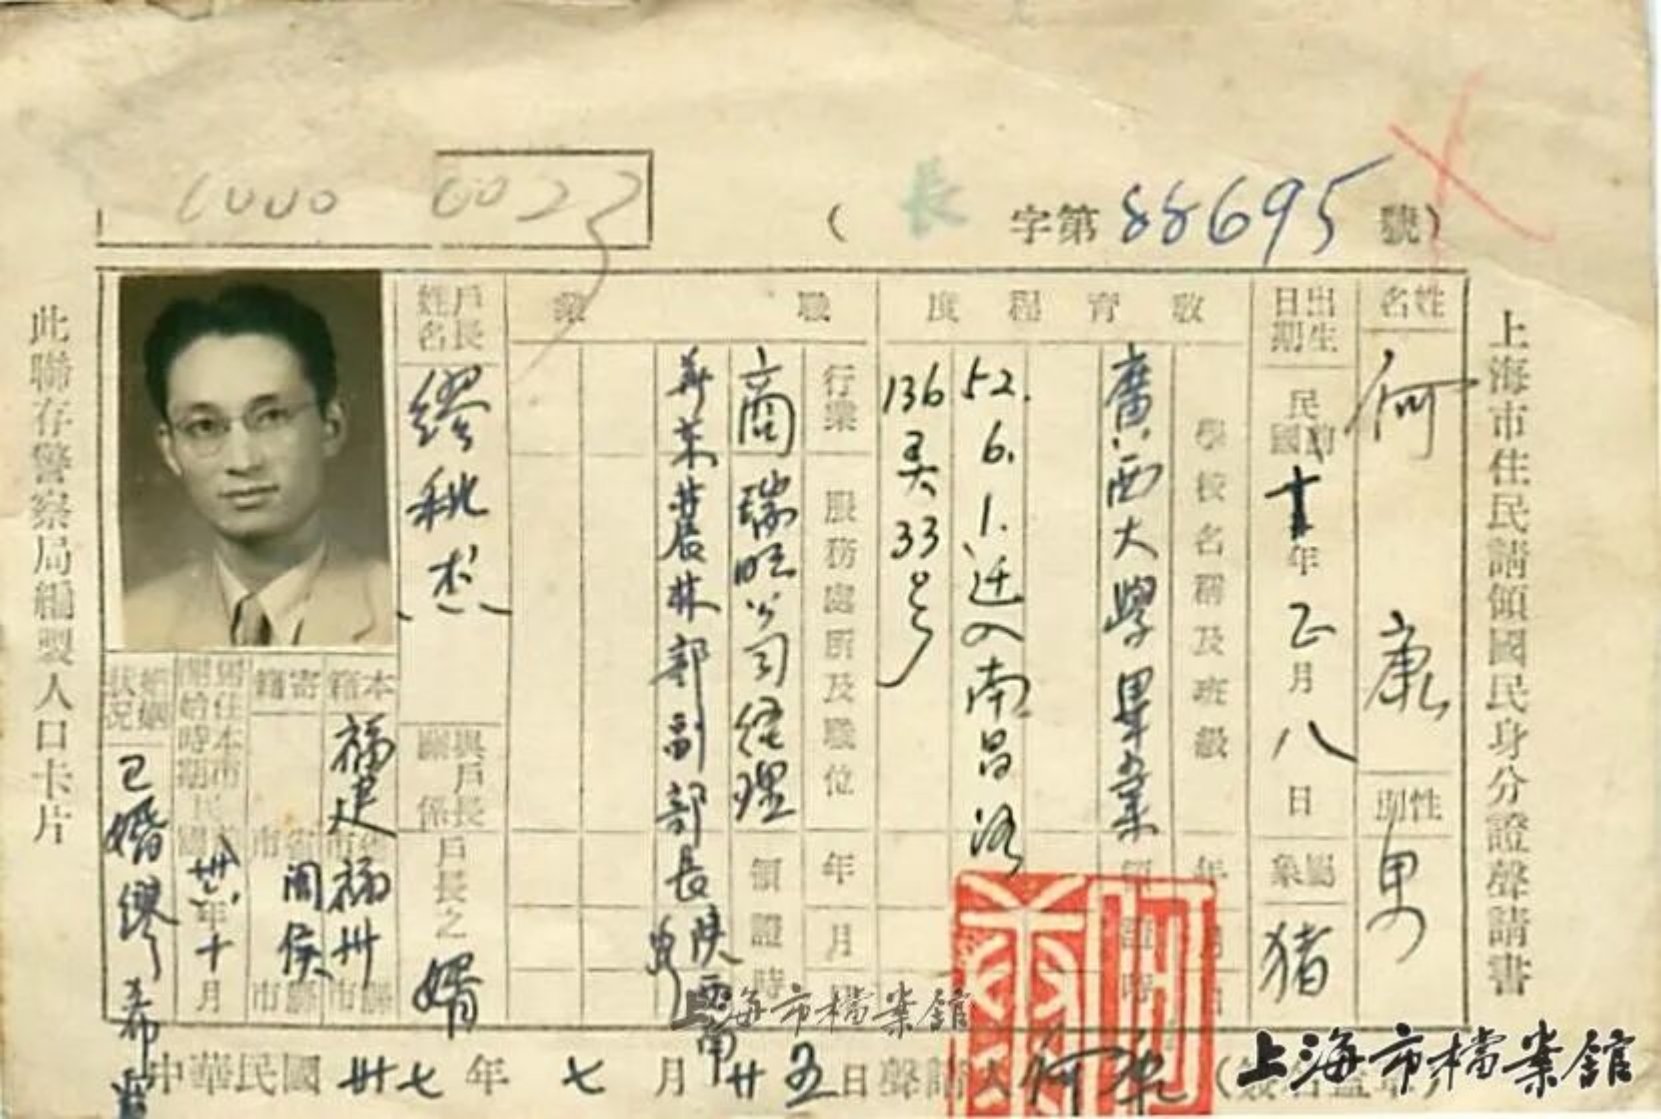 上海市住民請領國民身分證聲請書
(長字第88695號)
0023
姓名
何康
性別
男
出生日期
民國前十年正月八日
屬象
猪
教育程度
學校名稱及班級
廣西大學畢業
52.6.1.迁入南昌路
136弄33号
職業
行業
服務處所及職位
年月
領證時
商瑞旺公司經理
農林部副部長
戶長姓名
繆秋杰
與戶長關係
戶長之婿
本籍
福建福州
寄籍
閩侯
居住本市開始時期
年十月
婚姻狀况
已婚繆希霞
中華民國卅七年七月廿五日聲請人何康
此聯存警察局編製人口卡片
上海市檔案館
上海市檔案館